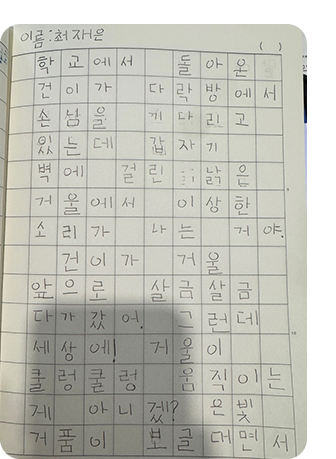 이름:최재은
( )
학교에서 돌아온
건이가 다락방에서
손남을
있는데 갑자기
벽에 걸린 낡은
거울에서 이상한
소리가 나는 거야.
건이가 거울
앞으로 살금살금
다가갔어. 그런데
세상에! 거울이
쿨렁쿨렁 움직이는
게 아니겠? 은빛
거품이 보글대면서